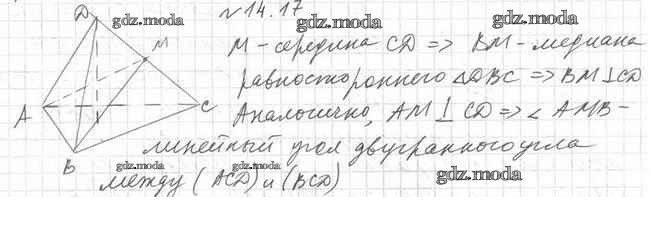 № 14.17
D
gdz.moda
gdz.moda
gdz.moda
M
A
B
C
M - середина CD => BM - медиана
равностороннего △DBC => BM ⊥ CD
Аналогично, AM ⊥ CD => ∠ AMB -
линейный угол двугранного угла
между (ACD) и (BCD)
gdz.moda
gdz.moda
gdz.moda